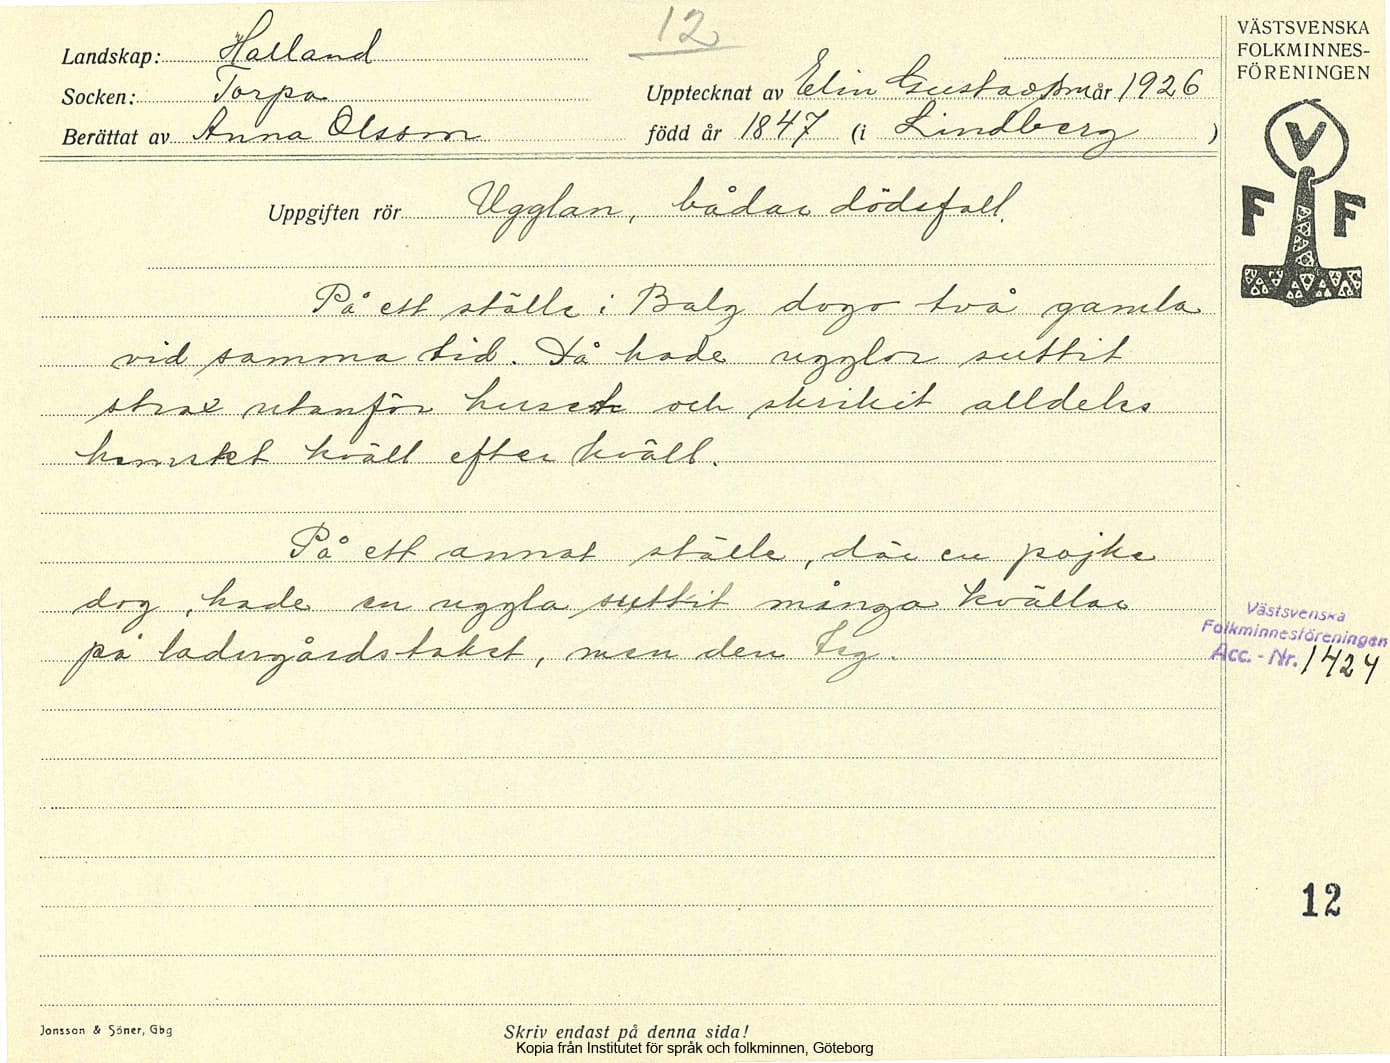 12
VÄSTSVENSKA
FOLKMINNES-
FÖRENINGEN
Landskap: Halland
Socken: Torpa
Upptecknat av Elin Gustavsson år 1926
Berättat av Anna Olsson född år 1847 (i Lindberg )
V
F F
Uppgiften rör Ugglan, bådar dödsfall.
På ett ställe i Balg dogo två gamla
vid samma tid. Då hade ugglor suttit
strax utanför huset och skrikit alldeles
hemskt kväll efter kväll.
På ett annat ställe, där en pojke
dog, hade en uggla suttit många kvällar
på ladugårdstaket, men den teg.
Västsvenska
Folkminnesföreningen
Acc. - Nr. 1424
12
Jonsson & Söner, Gbg
Skriv endast på denna sida!
Kopia från Institutet för språk och folkminnen, Göteborg